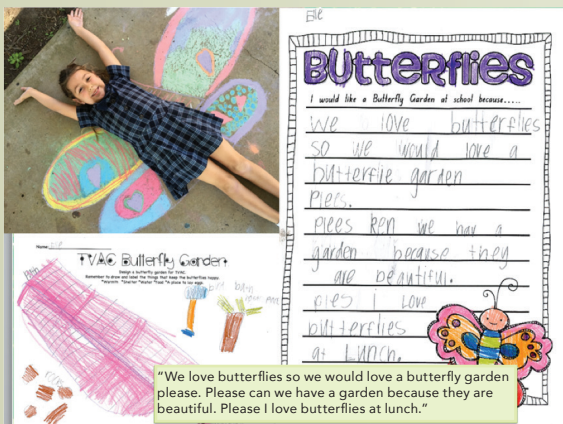 Elle
BUtteRflies
I would like a Butterfly Garden at school because.....
We love butterflies
so we would love a
butterflie garden
Plees.
Plees Ken we hav a
garden because they
are beautiful.
ples I Love
butterflies
at Lunch.
Name:
TVAC Butterfly Garden
Design a butterfly garden for TVAC.
Remember to draw and label the things that keep the butterflies happy.
*Warmth *Shelter *Water *Food *A place to lay eggs
"We love butterflies so we would love a butterfly garden
please. Please can we have a garden because they are
beautiful. Please I love butterflies at lunch."